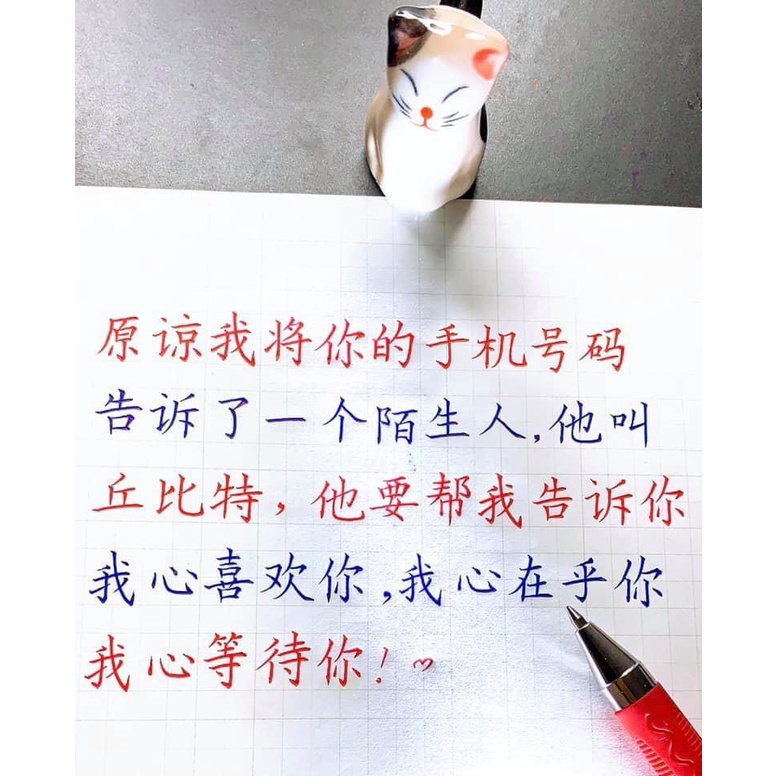 原谅我将你的手机号码
告诉了一个陌生人,他叫
丘比特,他要帮我告诉你
我心喜欢你,我心在乎你
我心等待你!